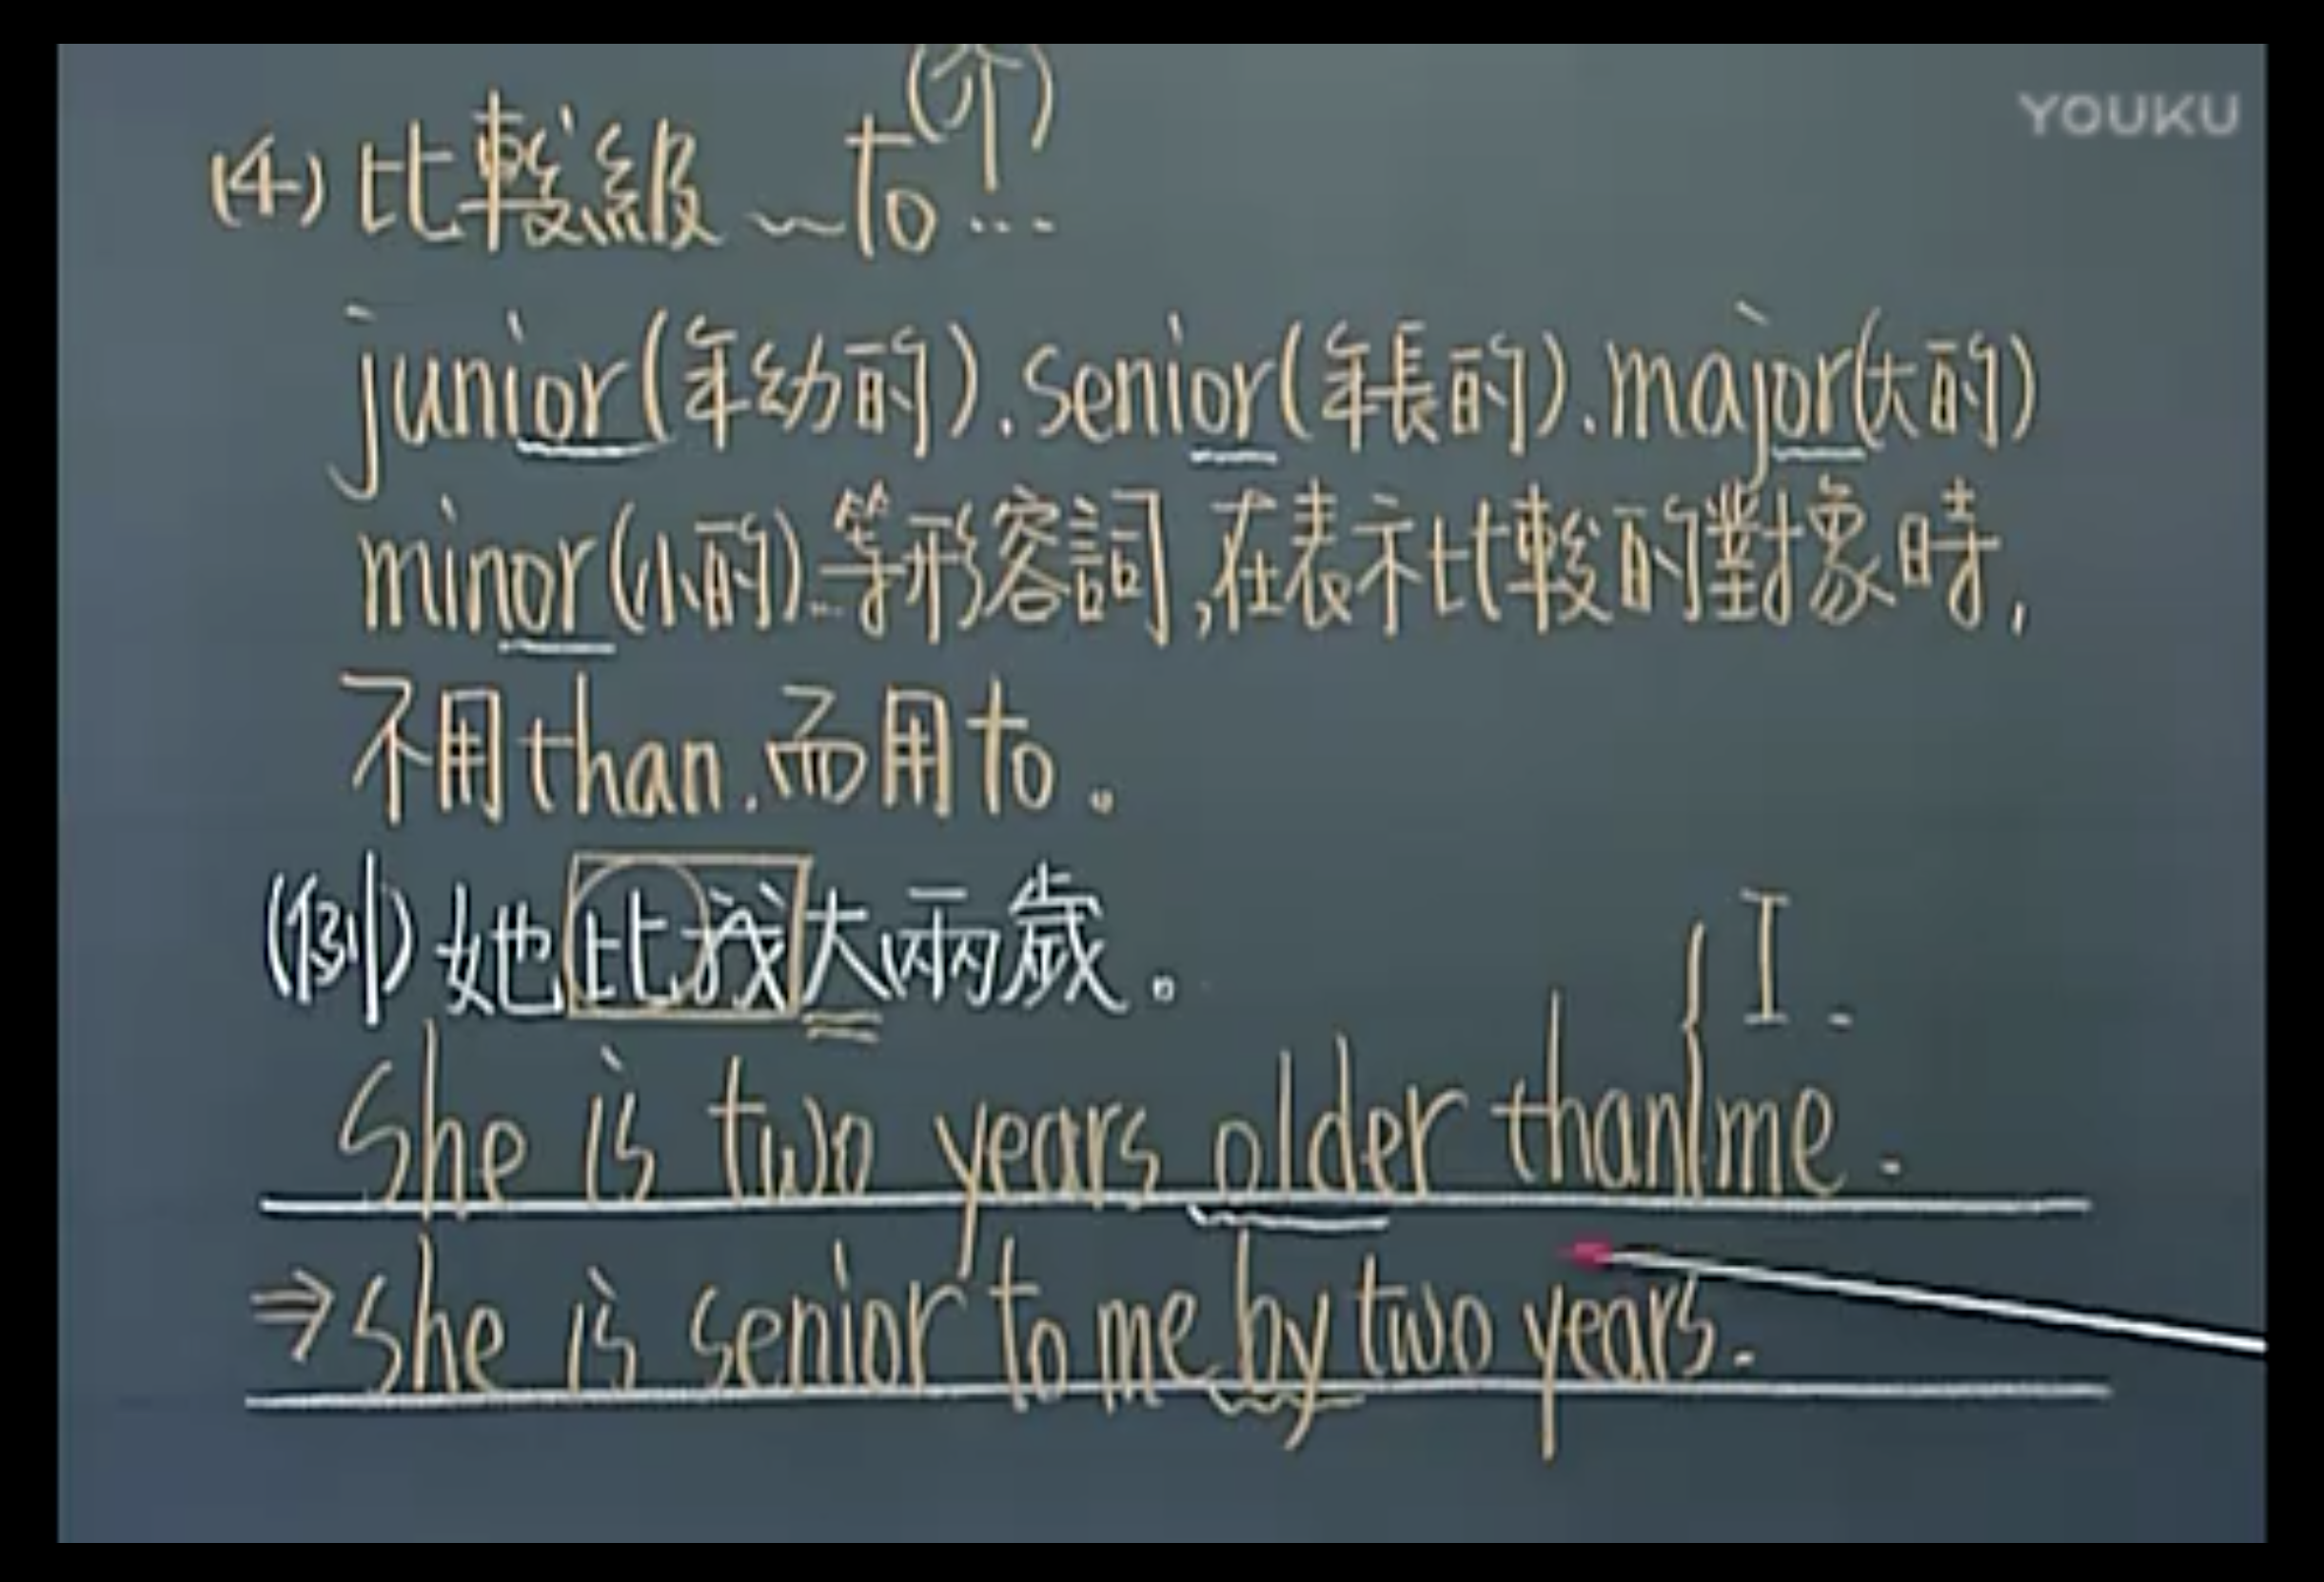 YOUKU
(介)
(4) 比較級 ~ to ...
junior(年幼的).senior(年長的).major(大的)
minor(小的)...等形容詞,在表示比較的對象時,
不用than.而用to。
(例)她比我大兩歲。
I.
She is two years older than{me.
⇒She is senior to me by two years.